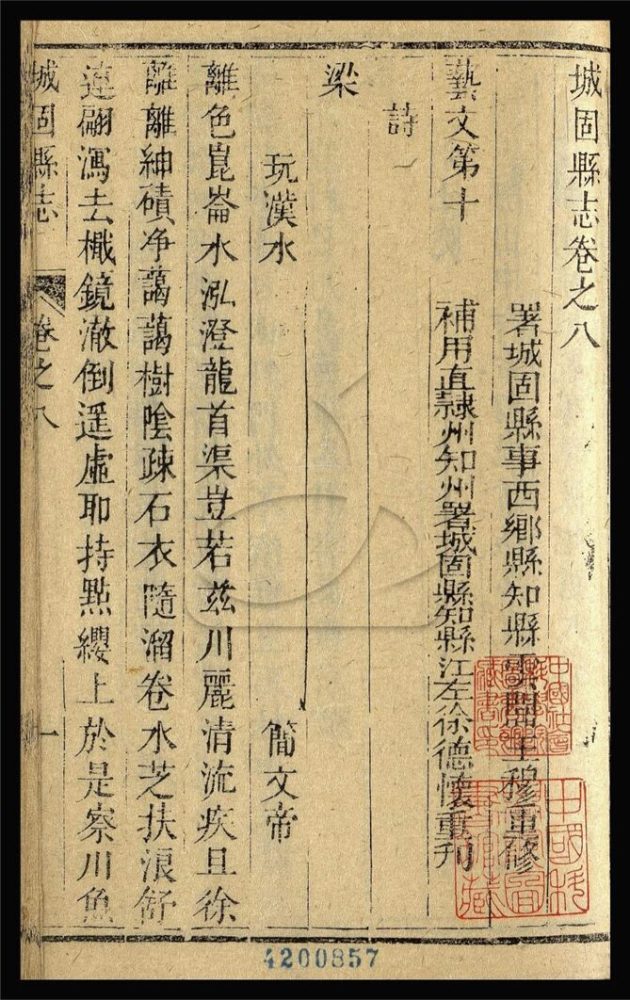 城固縣志卷之八
署城固縣事西鄉縣知縣雲間王穆重修
藝文第十　補用直隸州知州署城固縣知縣江左徐德懷重刊
詩
梁
玩漢水　簡文帝
離色崑崙水泓澄龍首渠豈若兹川麗清流疾且徐
離離細磧净藹藹樹隂疎石衣隨溜卷水芝扶浪舒
連翩瀉去檝鏡澈倒遥虛耶持點纓上於是察川魚
城固縣志　卷之八　一
4200857